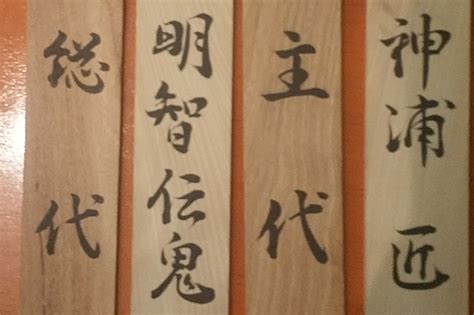 神浦匠
主代
明智伝鬼
総代